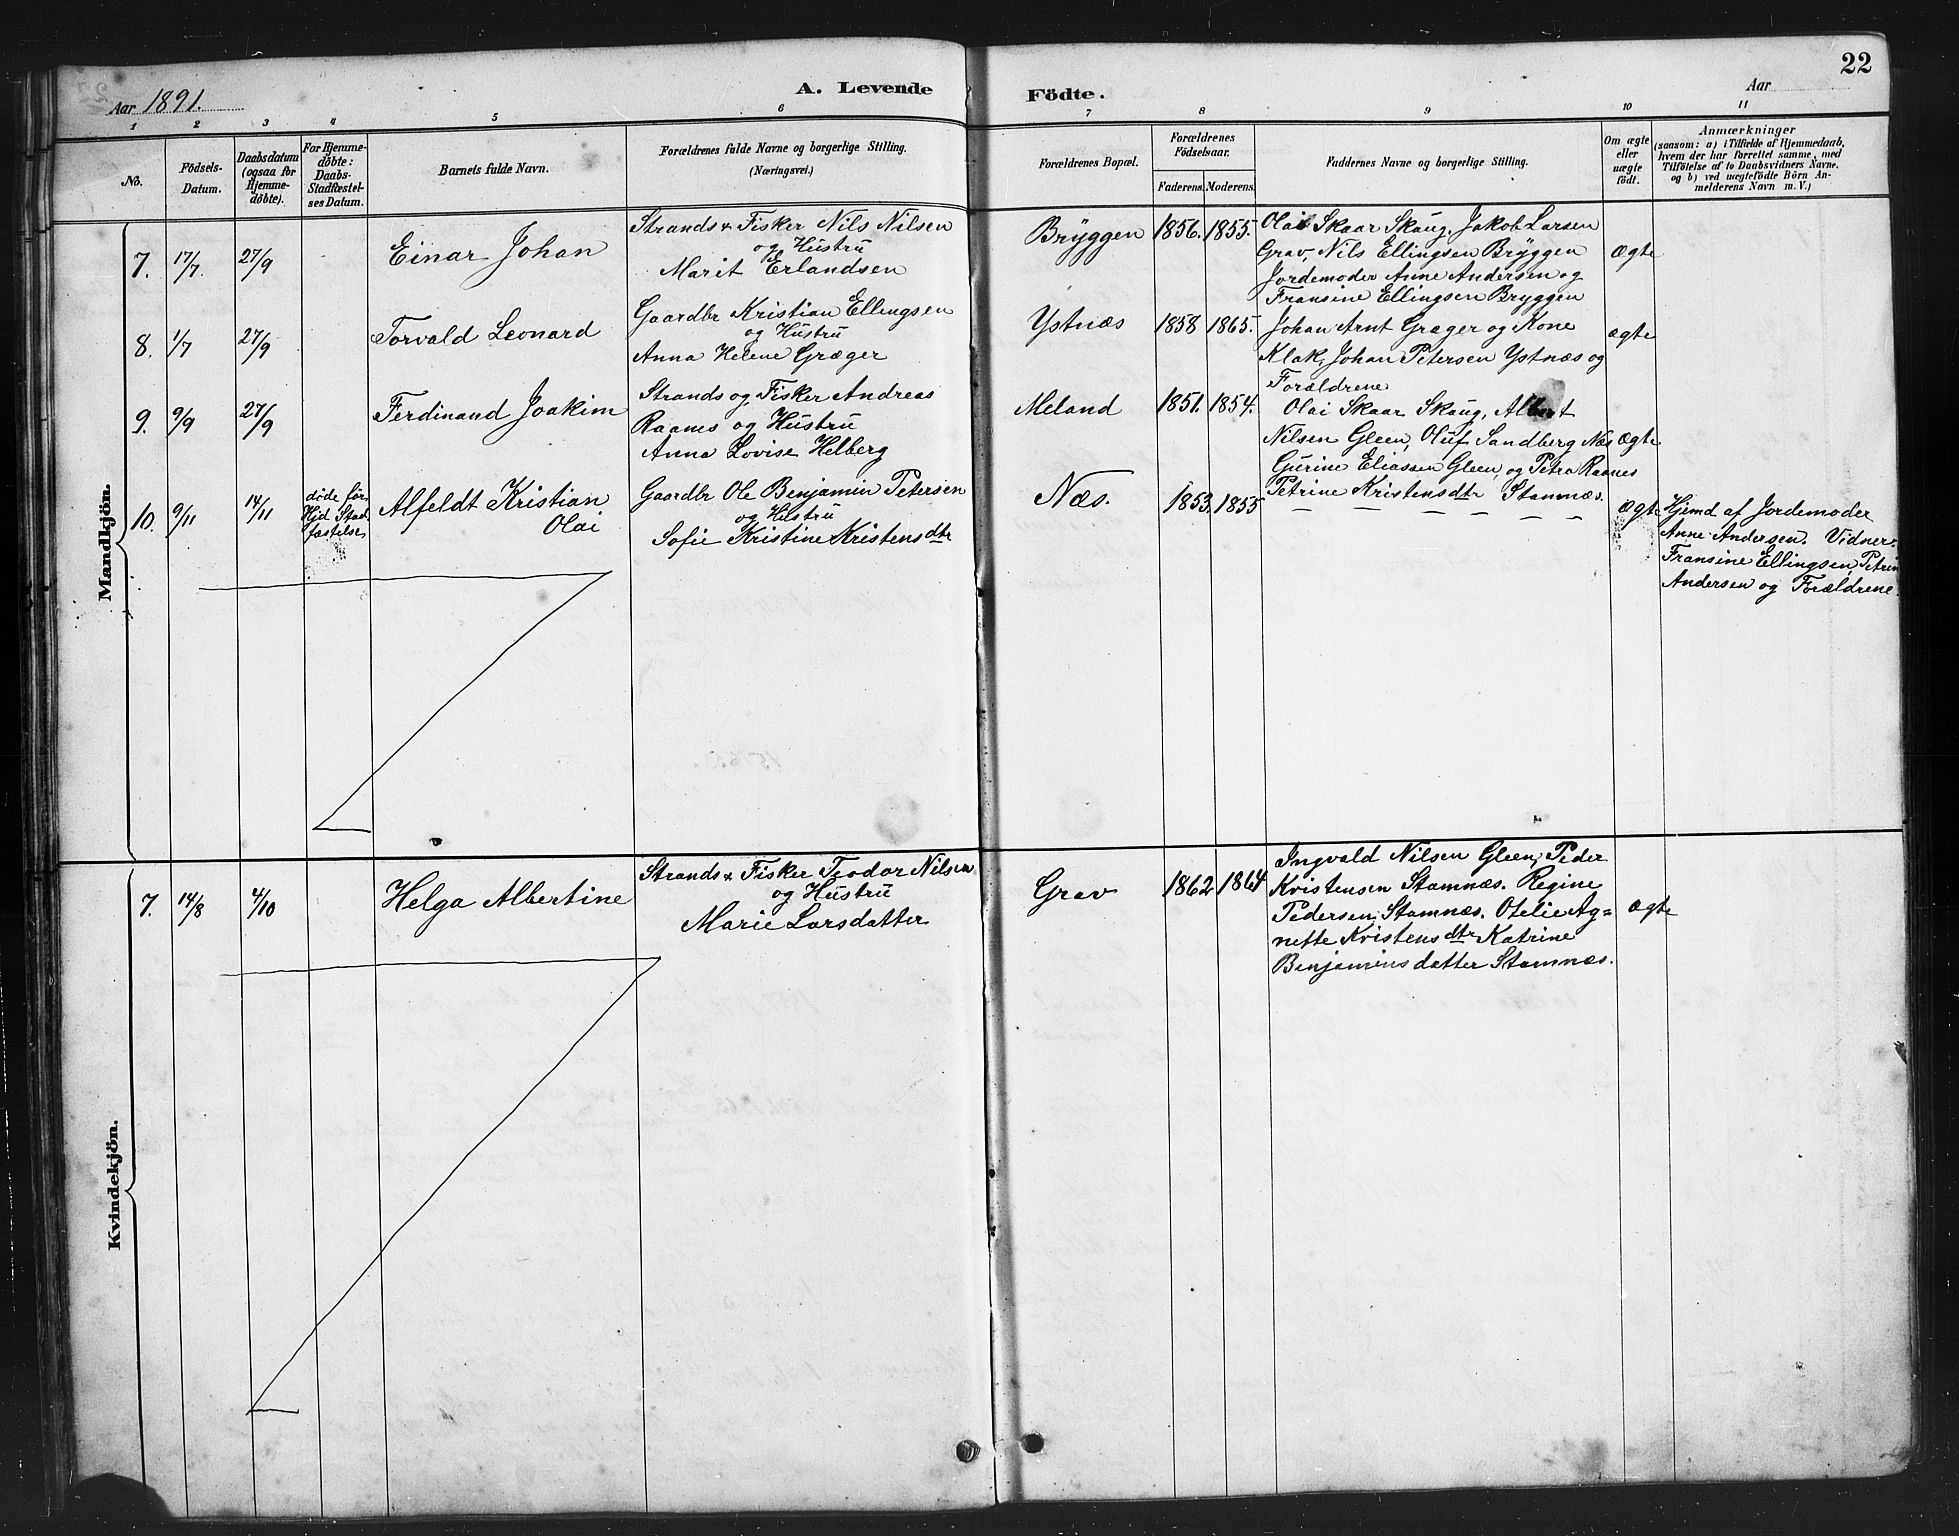 22
Aar 1891.
A. Levende Födte.
Aar
1 2 3 4 5 6 7 8 9 10 11
No.
Födsels-Datum.
Daabsdatum (ogsaa for Hjemme-döbte).
For Hjemme-döbte: Daabs-Stadfæstel-ses Datum.
Barnets fulde Navn.
Forældrenes fulde Navne og borgerlige Stilling.
(Næringsvei.)
Forældrenes Bopæl.
Forældrenes Födselsaar.
Faderens. Moderens.
Faddernes Navne og borgerlige Stilling.
Om ægte eller uægte födt.
Anmærkninger
(saasom: a) i Tilfælde af Hjemmedaab,
hvem der har forrettet samme, med
Tilföielse af to Daabsvidners Navne,
og b) ved uægtefödte Börn An-
melderens Navn m. V.)
Mandkjön.
7. 17/7. 27/9 Einar Johan
Strands. & Fisker Nils Nilsen
og Hustru
Marit Erlandsen
Bryggen 1856. 1855.
Olai Skaar Skaug, Jakob Larsen
Grav, Nils Ellingsen Bryggen
Jordemoder Anne Andersen og
Fransine Ellingsen Bryggen
Ægte
8. 1/7 27/9 Torvald Leonard
Gaardbr Kristian Ellingsen
og Hustru
Anna Helene Græger
Ystnæs 1858 1865.
Johan Arnt Græger og Kone
Klak, Johan Petersen Ystnæs og
Forældrene
ægte
9. 9/9 27/9 Ferdinand Joakim
Strands og Fisker Andreas
Raanes og Hustru
Anna Lovise Helberg
Meland 1851. 1854.
Olai Skaar Skaug, Albert
Nilsen Gleen, Oluf Sandberg Næs
Gurine Eliassen Gleen, og Petra Raanes
Petrine Kristensdtr Stamnæs.
Ægte
10. 9/11 14/11
døde før
Hjd Stad
fæstelse
Alfeldt Kristian
Olai
Gaardbr Ole Benjamin Petersen
og Hustru
Sofie Kristine Kristensdtr
Næs. 1853. 1855
— — — — — —
Ægte
Hjemd af Jordemoder
Anne Andersen. Vidner:
Fransine Ellingsen, Petrin
Andersen og Forældrene.
Kvindekjön.
7. 14/8 4/10 Helga Albertine
Strands. & Fisker Teodor Nilsen
og Hustru
Marie Larsdatter
Grav 1862 1864
Ingvald Nilsen Gleen, Peder
Kristensen Stamnæs. Regine
Pedersen Stamnæs. Otelie Ag=
nette Kristensdtr Katrine
Benjaminsdatter Stamnæs.
Ægte